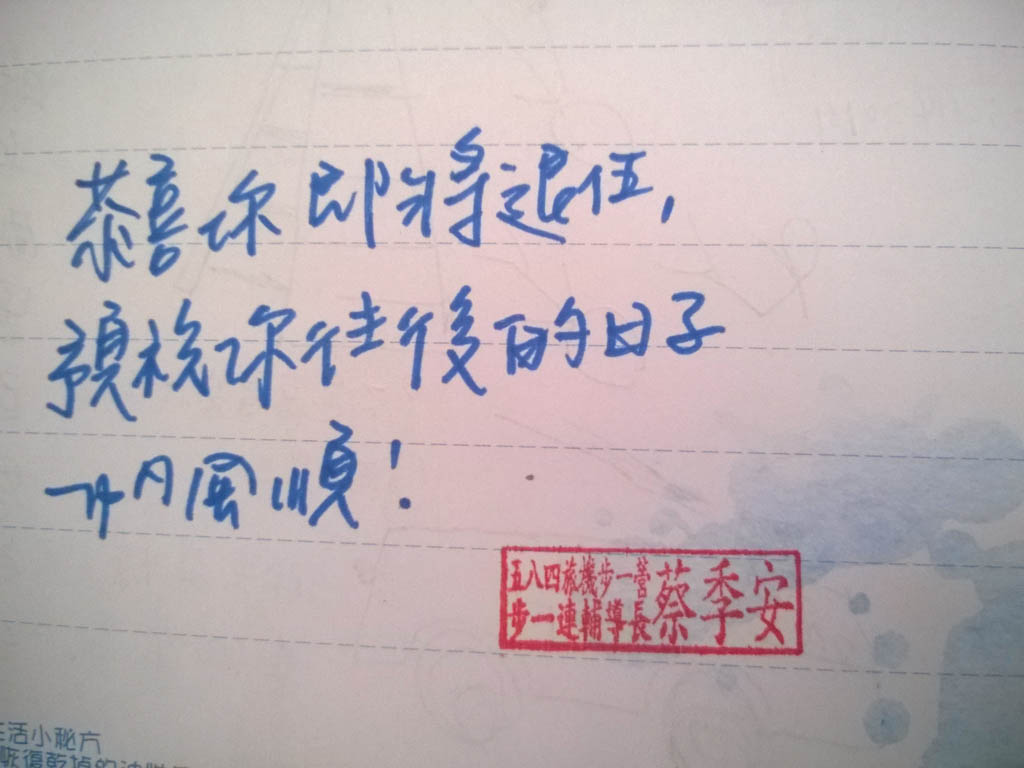 恭喜你即將退伍，
預祝你往後的日子
一帆風順！
五八四旅機步一營
步一連輔導長
蔡季安
生活小秘方